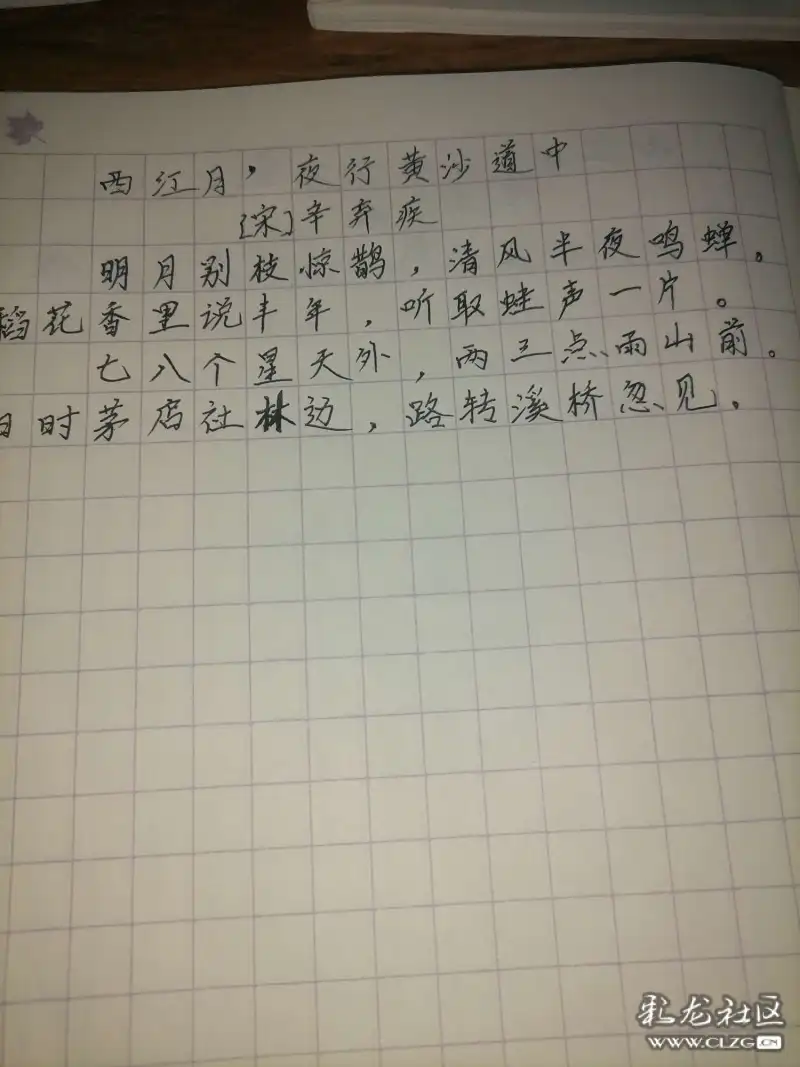 西江月，夜行黄沙道中
[宋]辛弃疾
明月别枝惊鹊，清风半夜鸣蝉。
稻花香里说丰年，听取蛙声一片。
七八个星天外，两三点雨山前。
旧时茅店社林边，路转溪桥忽见。
彩龙社区
WWW.CLZG.CN